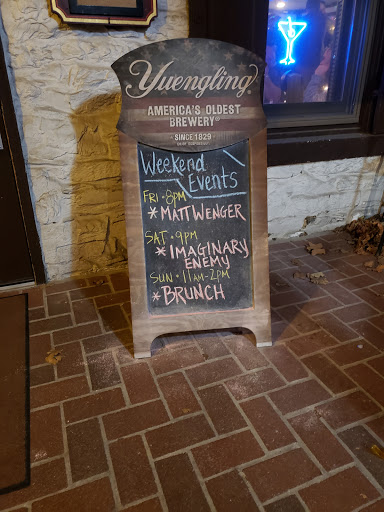 Yuengling®
AMERICA'S OLDEST
BREWERY®
SINCE 1829
Weekend
Events
FRI·8PM
*MATT WENGER
SAT·9PM
*IMAGINARY
ENEMY
SUN·11AM-2PM
*BRUNCH